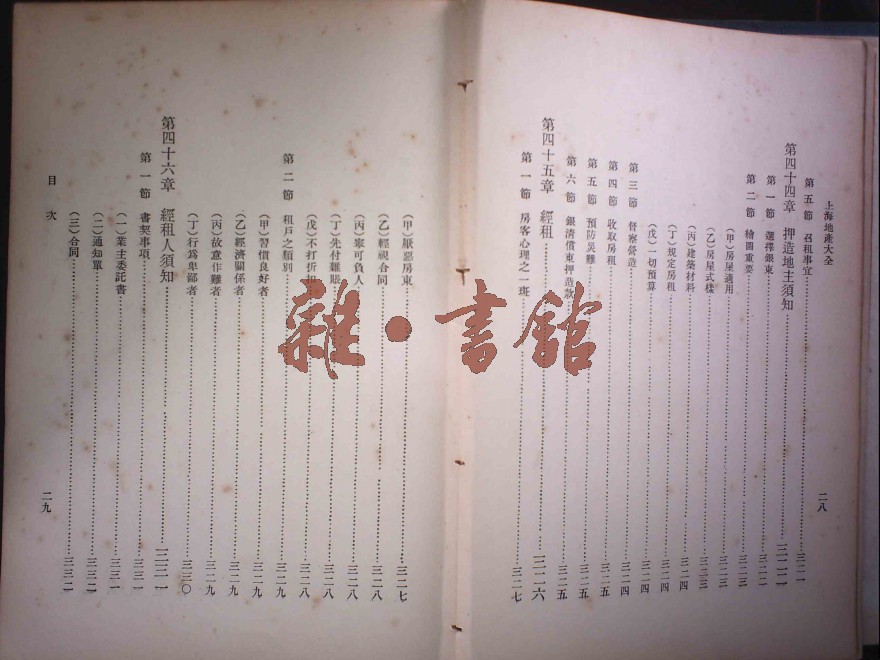 上海地產大全
二八
第五節 召租事宜 三二一
第四十四章 押造地主須知 三二二
第一節 選擇銀東 三二二
第二節 繪圖重要 三二三
(甲)房屋適用 三二三
(乙)房屋式樣 三二三
(丙)建築材料 三二四
(丁)規定房租 三二四
(戊)一切預算 三二四
第三節 督察營造 三二四
第四節 收取房租 三二五
第五節 預防災難 三二五
第六節 銀清償東押造款 三二五
第四十五章 經租 三二六
第一節 房客心理之一斑 三二七
(甲)厭惡房東 三二七
(乙)輕視合同 三二八
(丙)寧可負人 三二八
(丁)先付難賒 三二八
(戊)不打折扣 三二八
第二節 租戶之類別 三二九
(甲)習慣良好者 三二九
(乙)經濟關係者 三二九
(丙)故意作難者 三二九
(丁)行爲卑鄙者 三三〇
第四十六章 經租人須知 三三一
第一節 書契事項 三三一
(一)業主委託書 三三一
(二)通知單 三三二
(三)合同 三三二
目次
二九
雜·書館